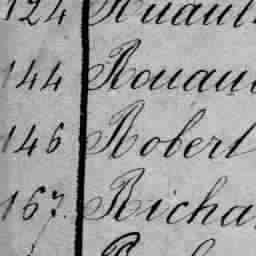 124 Ruault
144 Rouau
146 Robert
167. Richa